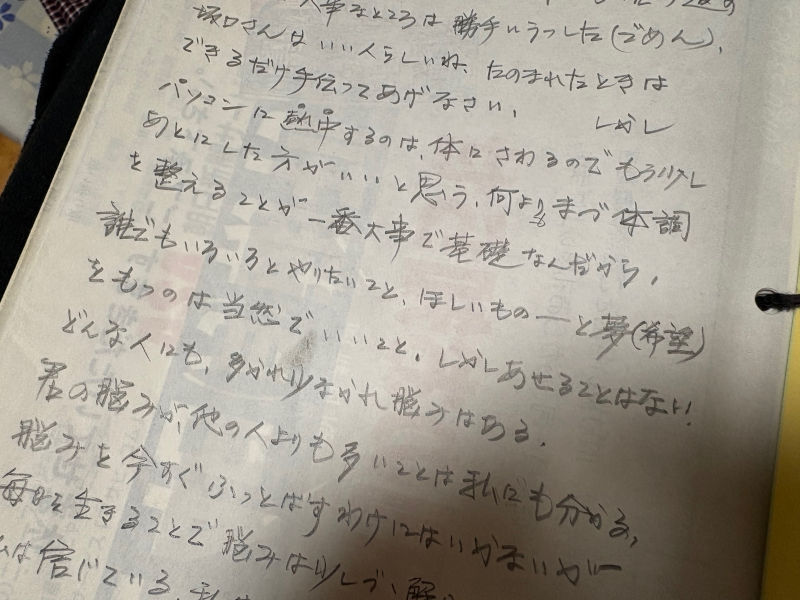 大事なところは勝手にうつした(ごめん)、
坂口さんはいい人らしいね、たのまれたときは
できるだけ手伝ってあげなさい、
しかし
パソコンに熱中するのは、体にさわるのでもう少し
あとにした方がいいと思う、何よりもまづ体調
を整えることが一番大事で基礎なんだから、
誰でもいろいろとやりたいこと、ほしいもの―と夢(希望)
をもつのは当然でいいこと。しかしあせることはない!
どんな人にも、多かれ少なかれ脳みはある.
君の脳みが、他の人よりも多いことは私にも分かる、
脳みを今すぐふっとばすわけにはいかないが―
毎日を生きることで脳みは少しづヽ解
は信じている、私は